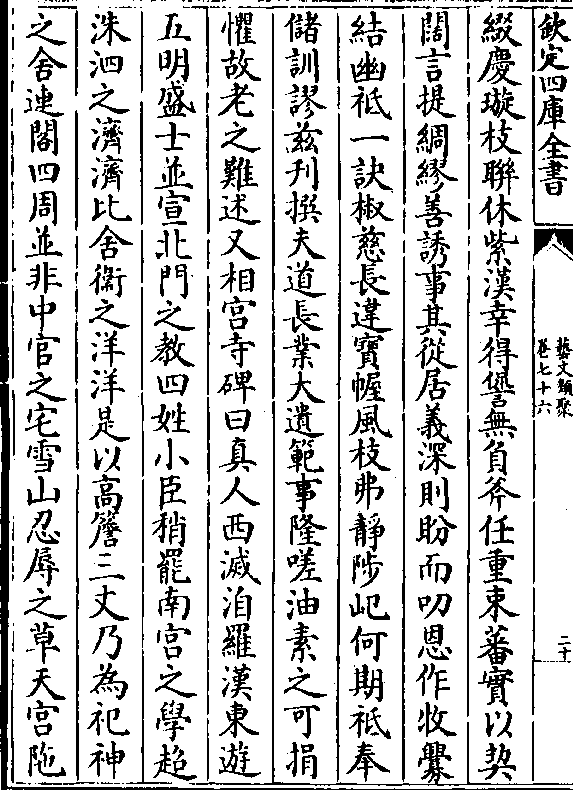 欽定四庫全書
藝文類聚
卷七十六
二十
綴慶璇枝聯休紫漢幸得譽無負斧任重束蕃實以契
闊言提綢繆善誘事其從居義深則盼而叨恩作牧釁
結幽祇一訣椒慈長違寶幄風枝弗靜陟屺何期祗奉
儲訓謬兹刋撰夫道長業大遺範事隆嗟油素之可捐
懼故老之難述又相宫寺碑曰真人西滅洎羅漢東遊
五明盛士並宣北門之教四姓小臣稍罷南宫之學超
洙泗之濟濟比舍衛之洋洋是以高簷三丈乃為祀神
之舍連閣四周並非中官之宅雪山忍辱之草天宫陁